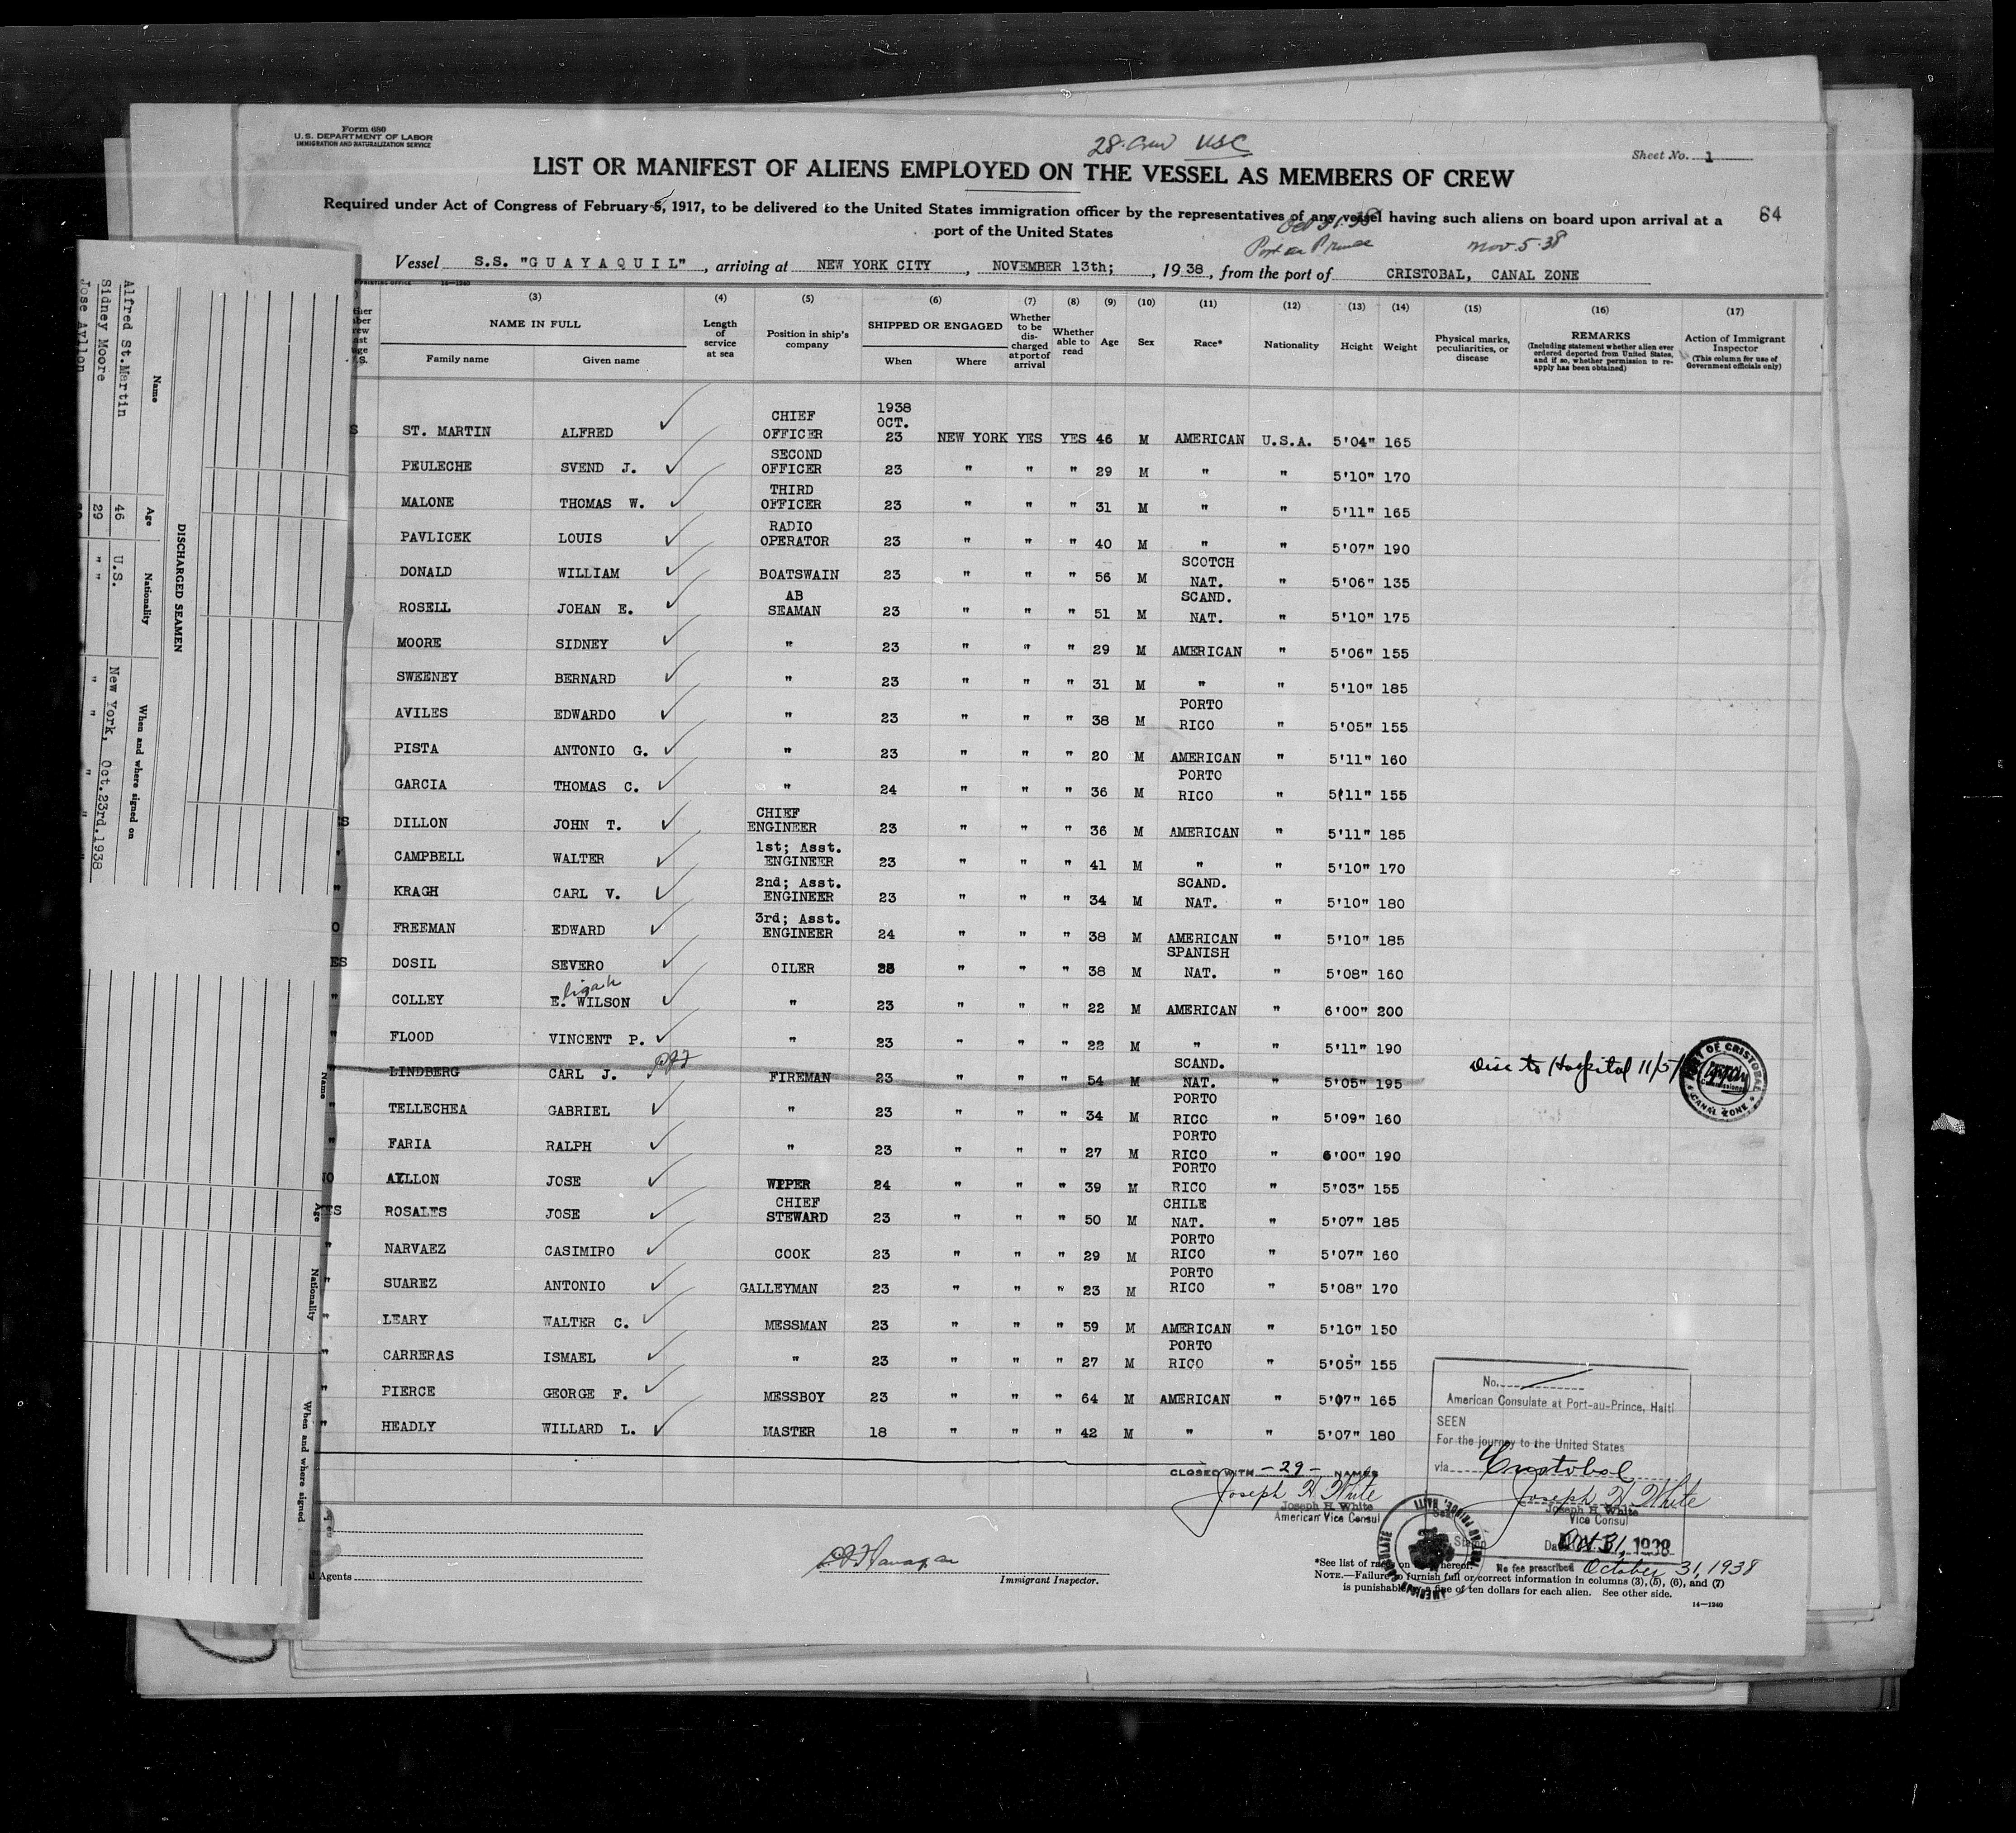 Form 680
U.S. DEPARTMENT OF LABOR
IMMIGRATION AND NATURALIZATION SERVICE
28 Crew USC
Sheet No. 1
LIST OR MANIFEST OF ALIENS EMPLOYED ON THE VESSEL AS MEMBERS OF CREW
64
Required under Act of Congress of February 5, 1917, to be delivered to the United States immigration officer by the representatives of any vessel having such aliens on board upon arrival at a
port of the United States
Oct 31-38
Port au Prince Nov. 5-38
Vessel S.S. "GUAYAQUIL", arriving at NEW YORK CITY, NOVEMBER 13th;, 1938, from the port of CRISTOBAL, CANAL ZONE
(3) (4) (5) (6) (7) (8) (9) (10) (11) (12) (13) (14) (15) (16) (17)
NAME IN FULL
Family name Given name
Length of service at sea
Position in ship's company
SHIPPED OR ENGAGED
When Where
Whether to be discharged at port of arrival
Whether able to read
Age Sex Race* Nationality Height Weight
Physical marks, peculiarities, or disease
REMARKS
(Including statement whether alien ever ordered deported from United States, and if so, whether permission to reapply has been obtained)
Action of Immigrant Inspector
(This column for use of Government officials only)
ST. MARTIN ALFRED CHIEF OFFICER 1938 OCT. 23 NEW YORK YES YES 46 M AMERICAN U.S.A. 5'04" 165
PEULECHE SVEND J. SECOND OFFICER 23 " " " 29 M " " 5'10" 170
MALONE THOMAS W. THIRD OFFICER 23 " " " 31 M " " 5'11" 165
PAVLICEK LOUIS RADIO OPERATOR 23 " " " 40 M " " 5'07" 190
DONALD WILLIAM BOATSWAIN 23 " " " 56 M SCOTCH NAT. " 5'06" 135
ROSELL JOHAN E. AB SEAMAN 23 " " " 51 M SCAND. NAT. " 5'10" 175
MOORE SIDNEY " 23 " " " 29 M AMERICAN " 5'06" 155
SWEENEY BERNARD " 23 " " " 31 M " " 5'10" 185
AVILES EDWARDO " 23 " " " 38 M PORTO RICO " 5'05" 155
PISTA ANTONIO G. " 23 " " " 20 M AMERICAN " 5'11" 160
GARCIA THOMAS C. " 24 " " " 36 M PORTO RICO " 5'11" 155
DILLON JOHN T. CHIEF ENGINEER 23 " " " 36 M AMERICAN " 5'11" 185
CAMPBELL WALTER 1st; Asst. ENGINEER 23 " " " 41 M " " 5'10" 170
KRAGH CARL V. 2nd; Asst. ENGINEER 23 " " " 34 M SCAND. NAT. " 5'10" 180
FREEMAN EDWARD 3rd; Asst. ENGINEER 24 " " " 38 M AMERICAN " 5'10" 185
DOSIL SEVERO OILER 23 " " " 38 M SPANISH NAT. " 5'08" 160
COLLEY E. ligah WILSON " 23 " " " 22 M AMERICAN " 6'00" 200
FLOOD VINCENT P. " 23 " " " 22 M " " 5'11" 190
LINDBERG CARL J. FIREMAN 23 " " " 54 M SCAND. NAT. " 5'05" 195 Disc to Hospital 11/5/
TELLECHEA GABRIEL " 23 " " " 34 M PORTO RICO " 5'09" 160
FARIA RALPH " 23 " " " 27 M PORTO RICO " 6'00" 190
AYLLON JOSE WIPER 24 " " " 39 M PORTO RICO " 5'03" 155
ROSALES JOSE CHIEF STEWARD 23 " " " 50 M CHILE NAT. " 5'07" 185
NARVAEZ CASIMIRO COOK 23 " " " 29 M PORTO RICO " 5'07" 160
SUAREZ ANTONIO GALLEYMAN 23 " " " 23 M PORTO RICO " 5'08" 170
LEARY WALTER C. MESSMAN 23 " " " 59 M AMERICAN " 5'10" 150
CARRERAS ISMAEL " 23 " " " 27 M PORTO RICO " 5'05" 155
PIERCE GEORGE F. MESSBOY 23 " " " 64 M AMERICAN " 5'07" 165
HEADLY WILLARD L. MASTER 18 " " " 42 M " " 5'07" 180
PORT OF CRISTOBAL
CANAL ZONE
CLOSED WITH -29- NAMES
Joseph H. White
Joseph H. White
American Vice Consul
No.
American Consulate at Port-au-Prince, Haiti
SEEN
For the journey to the United States
via Cristobal
Joseph H. White
Joseph H. White
Vice Consul
1938
No fee prescribed October 31, 1938
Agents
Immigrant Inspector.
*See list of races on hereof.
NOTE.—Failure to furnish full or correct information in columns (3), (5), (6), and (7)
is punishable fine of ten dollars for each alien. See other side.
14—1240
DISCHARGED SEAMEN
Name Age Nationality When and where signed on
Alfred St.Martin 46 U.S. New York, Oct.23rd.1938
Sidney Moore 29 " " " " "
Jose Ayllon
Name Age Nationality When and where signed